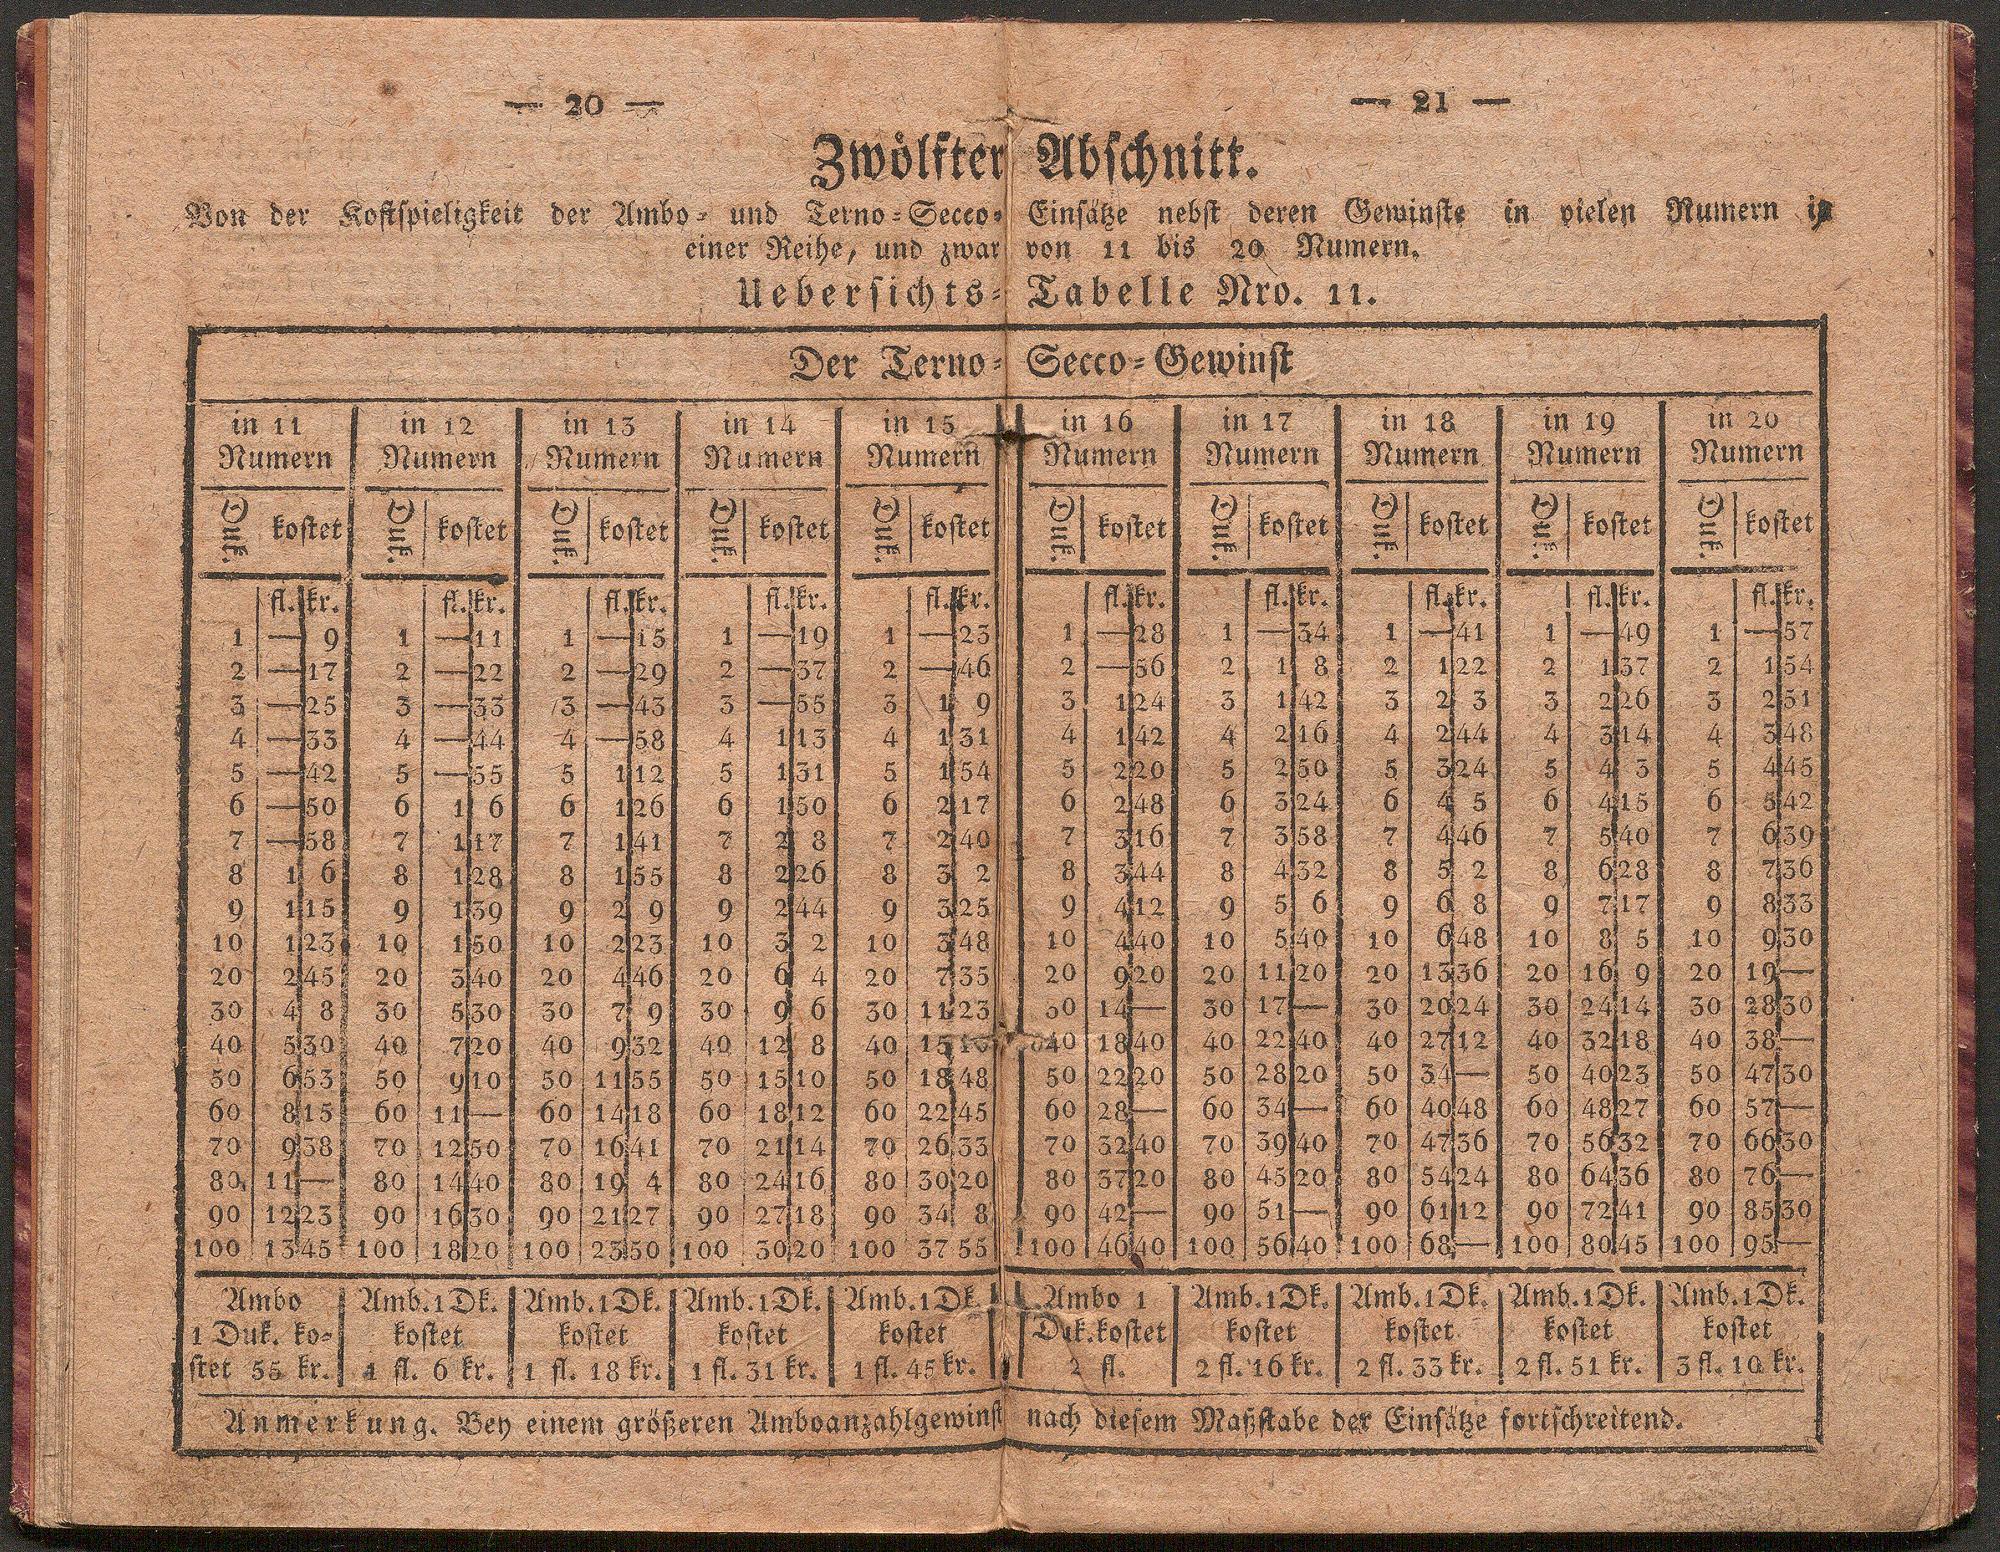 — 20 — — 21 —
Zwölfter Abschnitt.
Von der Kostspieligkeit der Ambo- und Terno-Secco-Einsätze nebst deren Gewinste in vielen Numern in
einer Reihe, und zwar von 11 bis 20 Numern.
Uebersichts-Tabelle Nro. 11.
Der Terno-Secco-Gewinst
in 11 in 12 in 13 in 14 in 15 in 16 in 17 in 18 in 19 in 20
Numern Numern Numern Numern Numern Numern Numern Numern Numern Numern
Duk. kostet Duk. kostet Duk. kostet Duk. kostet Duk. kostet Duk. kostet Duk. kostet Duk. kostet Duk. kostet Duk. kostet
fl. kr. fl. kr. fl. kr. fl. kr. fl. kr. fl. kr. fl. kr. fl. kr. fl. kr. fl. kr.
1 — 9 1 — 11 1 — 15 1 — 19 1 — 23 1 — 28 1 — 34 1 — 41 1 — 49 1 — 57
2 — 17 2 — 22 2 — 29 2 — 37 2 — 46 2 — 56 2 1 8 2 1 22 2 1 37 2 1 54
3 — 25 3 — 33 3 — 43 3 — 55 3 1 9 3 1 24 3 1 42 3 2 3 3 2 26 3 2 51
4 — 33 4 — 44 4 — 58 4 1 13 4 1 31 4 1 42 4 2 16 4 2 44 4 3 14 4 3 48
5 — 42 5 — 55 5 1 12 5 1 31 5 1 54 5 2 20 5 2 50 5 3 24 5 4 3 5 4 45
6 — 50 6 1 6 6 1 26 6 1 50 6 2 17 6 2 48 6 3 24 6 4 5 6 4 15 6 5 42
7 — 58 7 1 17 7 1 41 7 2 8 7 2 40 7 3 16 7 3 58 7 4 46 7 5 40 7 6 39
8 1 6 8 1 28 8 1 55 8 2 26 8 3 2 8 3 44 8 4 32 8 5 2 8 6 28 8 7 36
9 1 15 9 1 39 9 2 9 9 2 44 9 3 25 9 4 12 9 5 6 9 6 8 9 7 17 9 8 33
10 1 23 10 1 50 10 2 23 10 3 2 10 3 48 10 4 40 10 5 40 10 6 48 10 8 5 10 9 30
20 2 45 20 3 40 20 4 46 20 6 4 20 7 35 20 9 20 20 11 20 20 13 36 20 16 9 20 19 —
30 4 8 30 5 30 30 7 9 30 9 6 30 11 23 30 14 — 30 17 — 30 20 24 30 24 14 30 28 30
40 5 30 40 7 20 40 9 32 40 12 8 40 15 40 18 40 40 22 40 40 27 12 40 32 18 40 38 —
50 6 53 50 9 10 50 11 55 50 15 10 50 18 48 50 22 20 50 28 20 50 34 — 50 40 23 50 47 30
60 8 15 60 11 — 60 14 18 60 18 12 60 22 45 60 28 — 60 34 — 60 40 48 60 48 27 60 57 —
70 9 38 70 12 50 70 16 41 70 21 14 70 26 33 70 32 40 70 39 40 70 47 36 70 56 32 70 66 30
80 11 — 80 14 40 80 19 4 80 24 16 80 30 20 80 37 20 80 45 20 80 54 24 80 64 36 80 76 —
90 12 23 90 16 30 90 21 27 90 27 18 90 34 8 90 42 — 90 51 — 90 61 12 90 72 41 90 85 30
100 13 45 100 18 20 100 23 50 100 30 20 100 37 55 100 46 40 100 56 40 100 68 — 100 80 45 100 95 —
Ambo Amb. 1 Dk. Amb. 1 Dk. Amb. 1 Dk. Amb. 1 Dk. Ambo 1 Amb. 1 Dk. Amb. 1 Dk. Amb. 1 Dk. Amb. 1 Dk.
1 Duk. ko- kostet kostet kostet kostet Duk. kostet kostet kostet kostet kostet
stet 55 kr. 1 fl. 6 kr. 1 fl. 18 kr. 1 fl. 31 kr. 1 fl. 45 kr. 2 fl. 2 fl. 16 kr. 2 fl. 33 kr. 2 fl. 51 kr. 3 fl. 10 kr.
Anmerkung. Bey einem größeren Amboanzahlgewinst nach diesem Maßstabe der Einsätze fortschreitend.